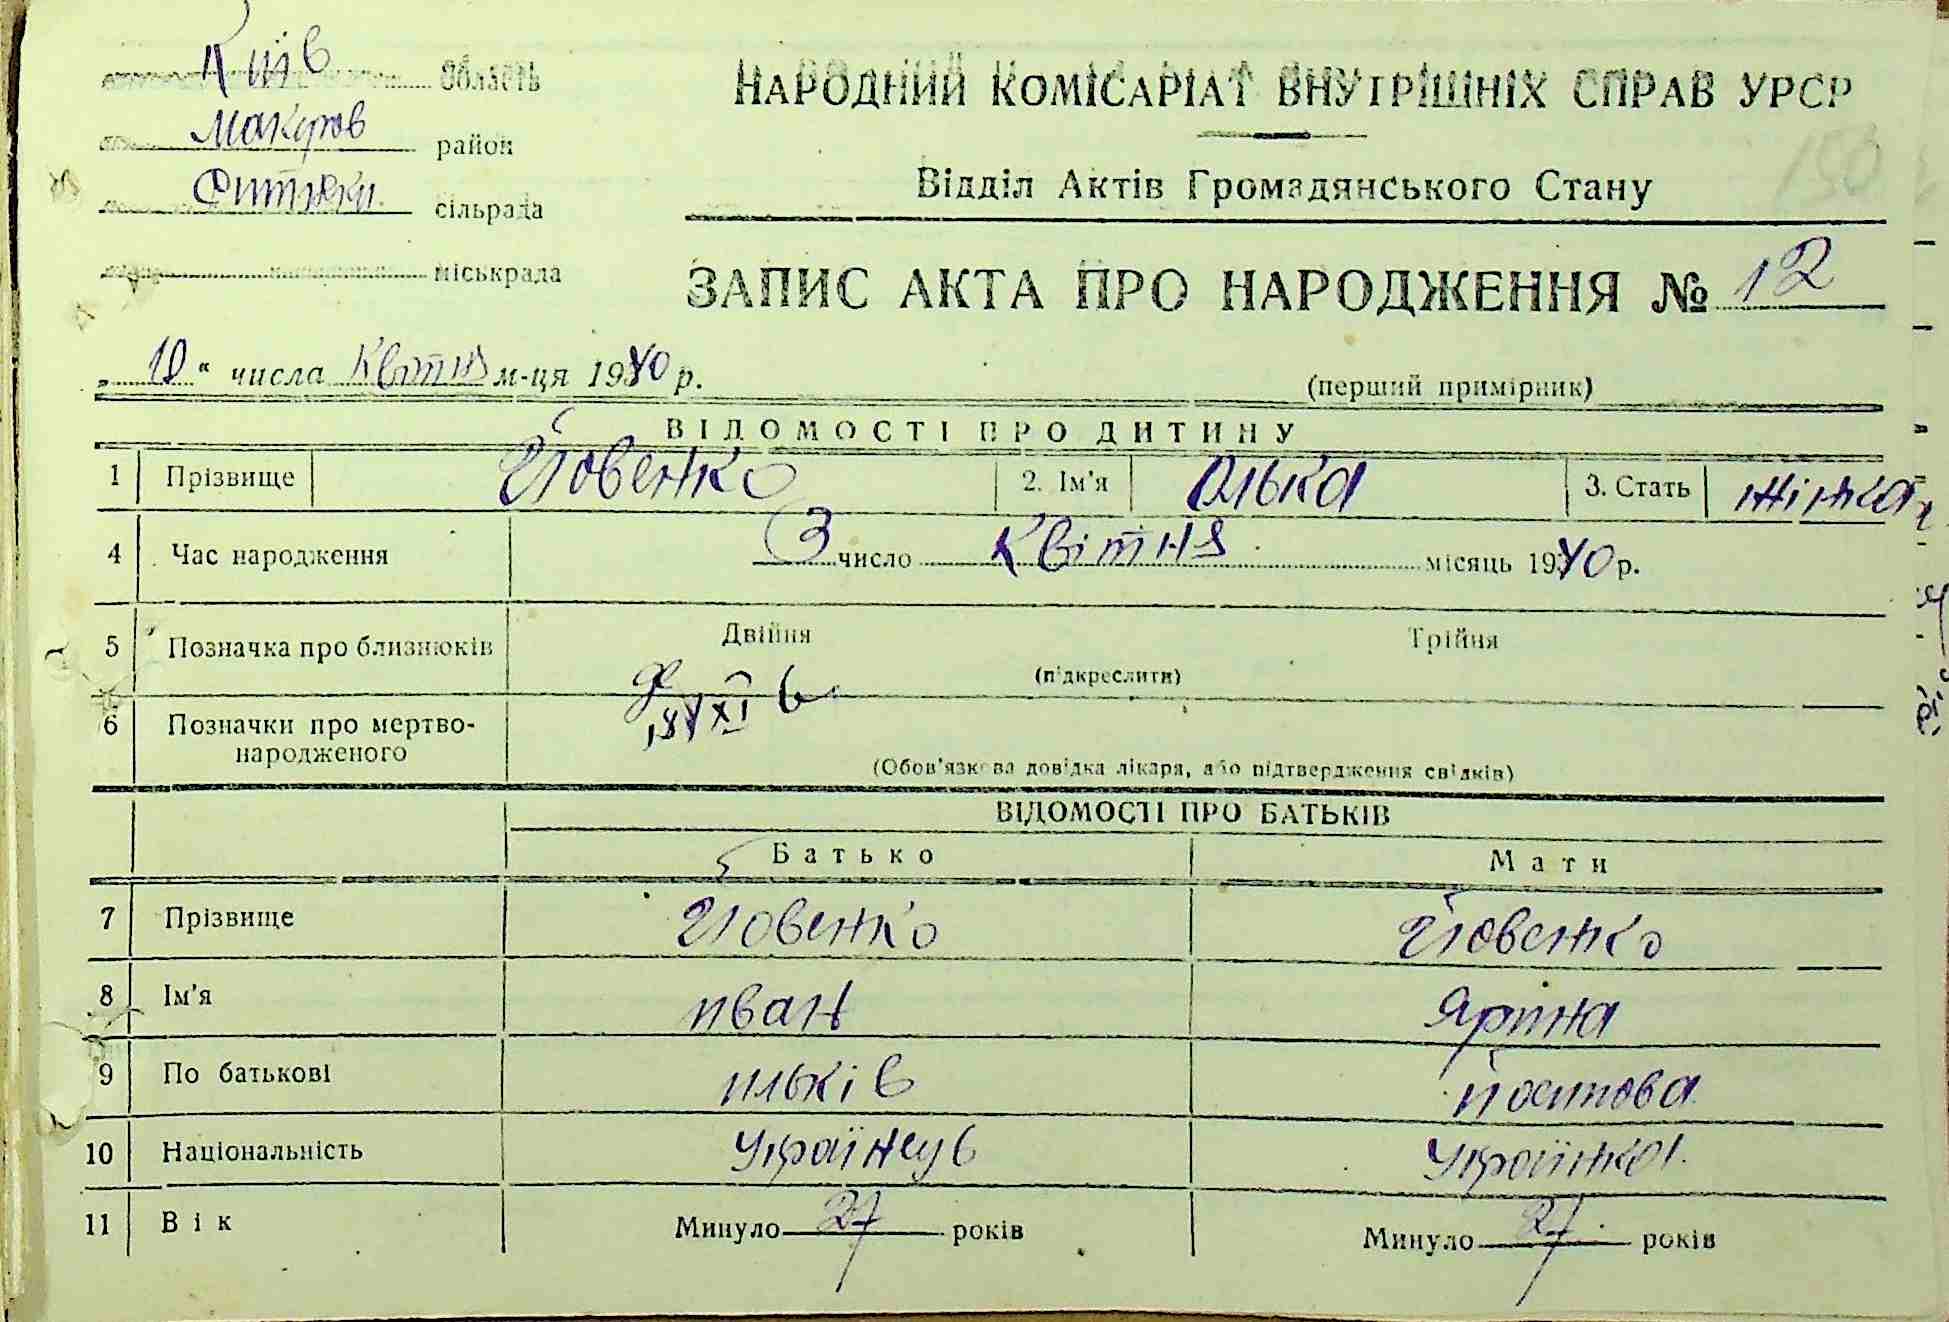 Київ область
Макаров район
Ситняки сільрада
міськрада
НАРОДНИЙ КОМІСАРІАТ ВНУТРІШНІХ СПРАВ УРСР
Відділ Актів Громадянського Стану
ЗАПИС АКТА ПРО НАРОДЖЕННЯ № 12
„10" числа Квітня м-ця 1940 р.
(перший примірник)
ВІДОМОСТІ ПРО ДИТИНУ
1 Прізвище Йовенко 2. Ім'я Олька 3. Стать жінка
4 Час народження 3 число Квітня місяць 1940 р.
5 Позначка про близнюків Двійня Трійня
(підкреслити)
6 Позначки про мертво-
народженого
(Обов'язкова довідка лікаря, або підтвердження свідків)
ВІДОМОСТІ ПРО БАТЬКІВ
Батько Мати
7 Прізвище Йовенко Йовенко
8 Ім'я иван Ярина
9 По батькові ильків йосипова
10 Національність Українець Українка
11 Вік Минуло 27 років Минуло 27 років